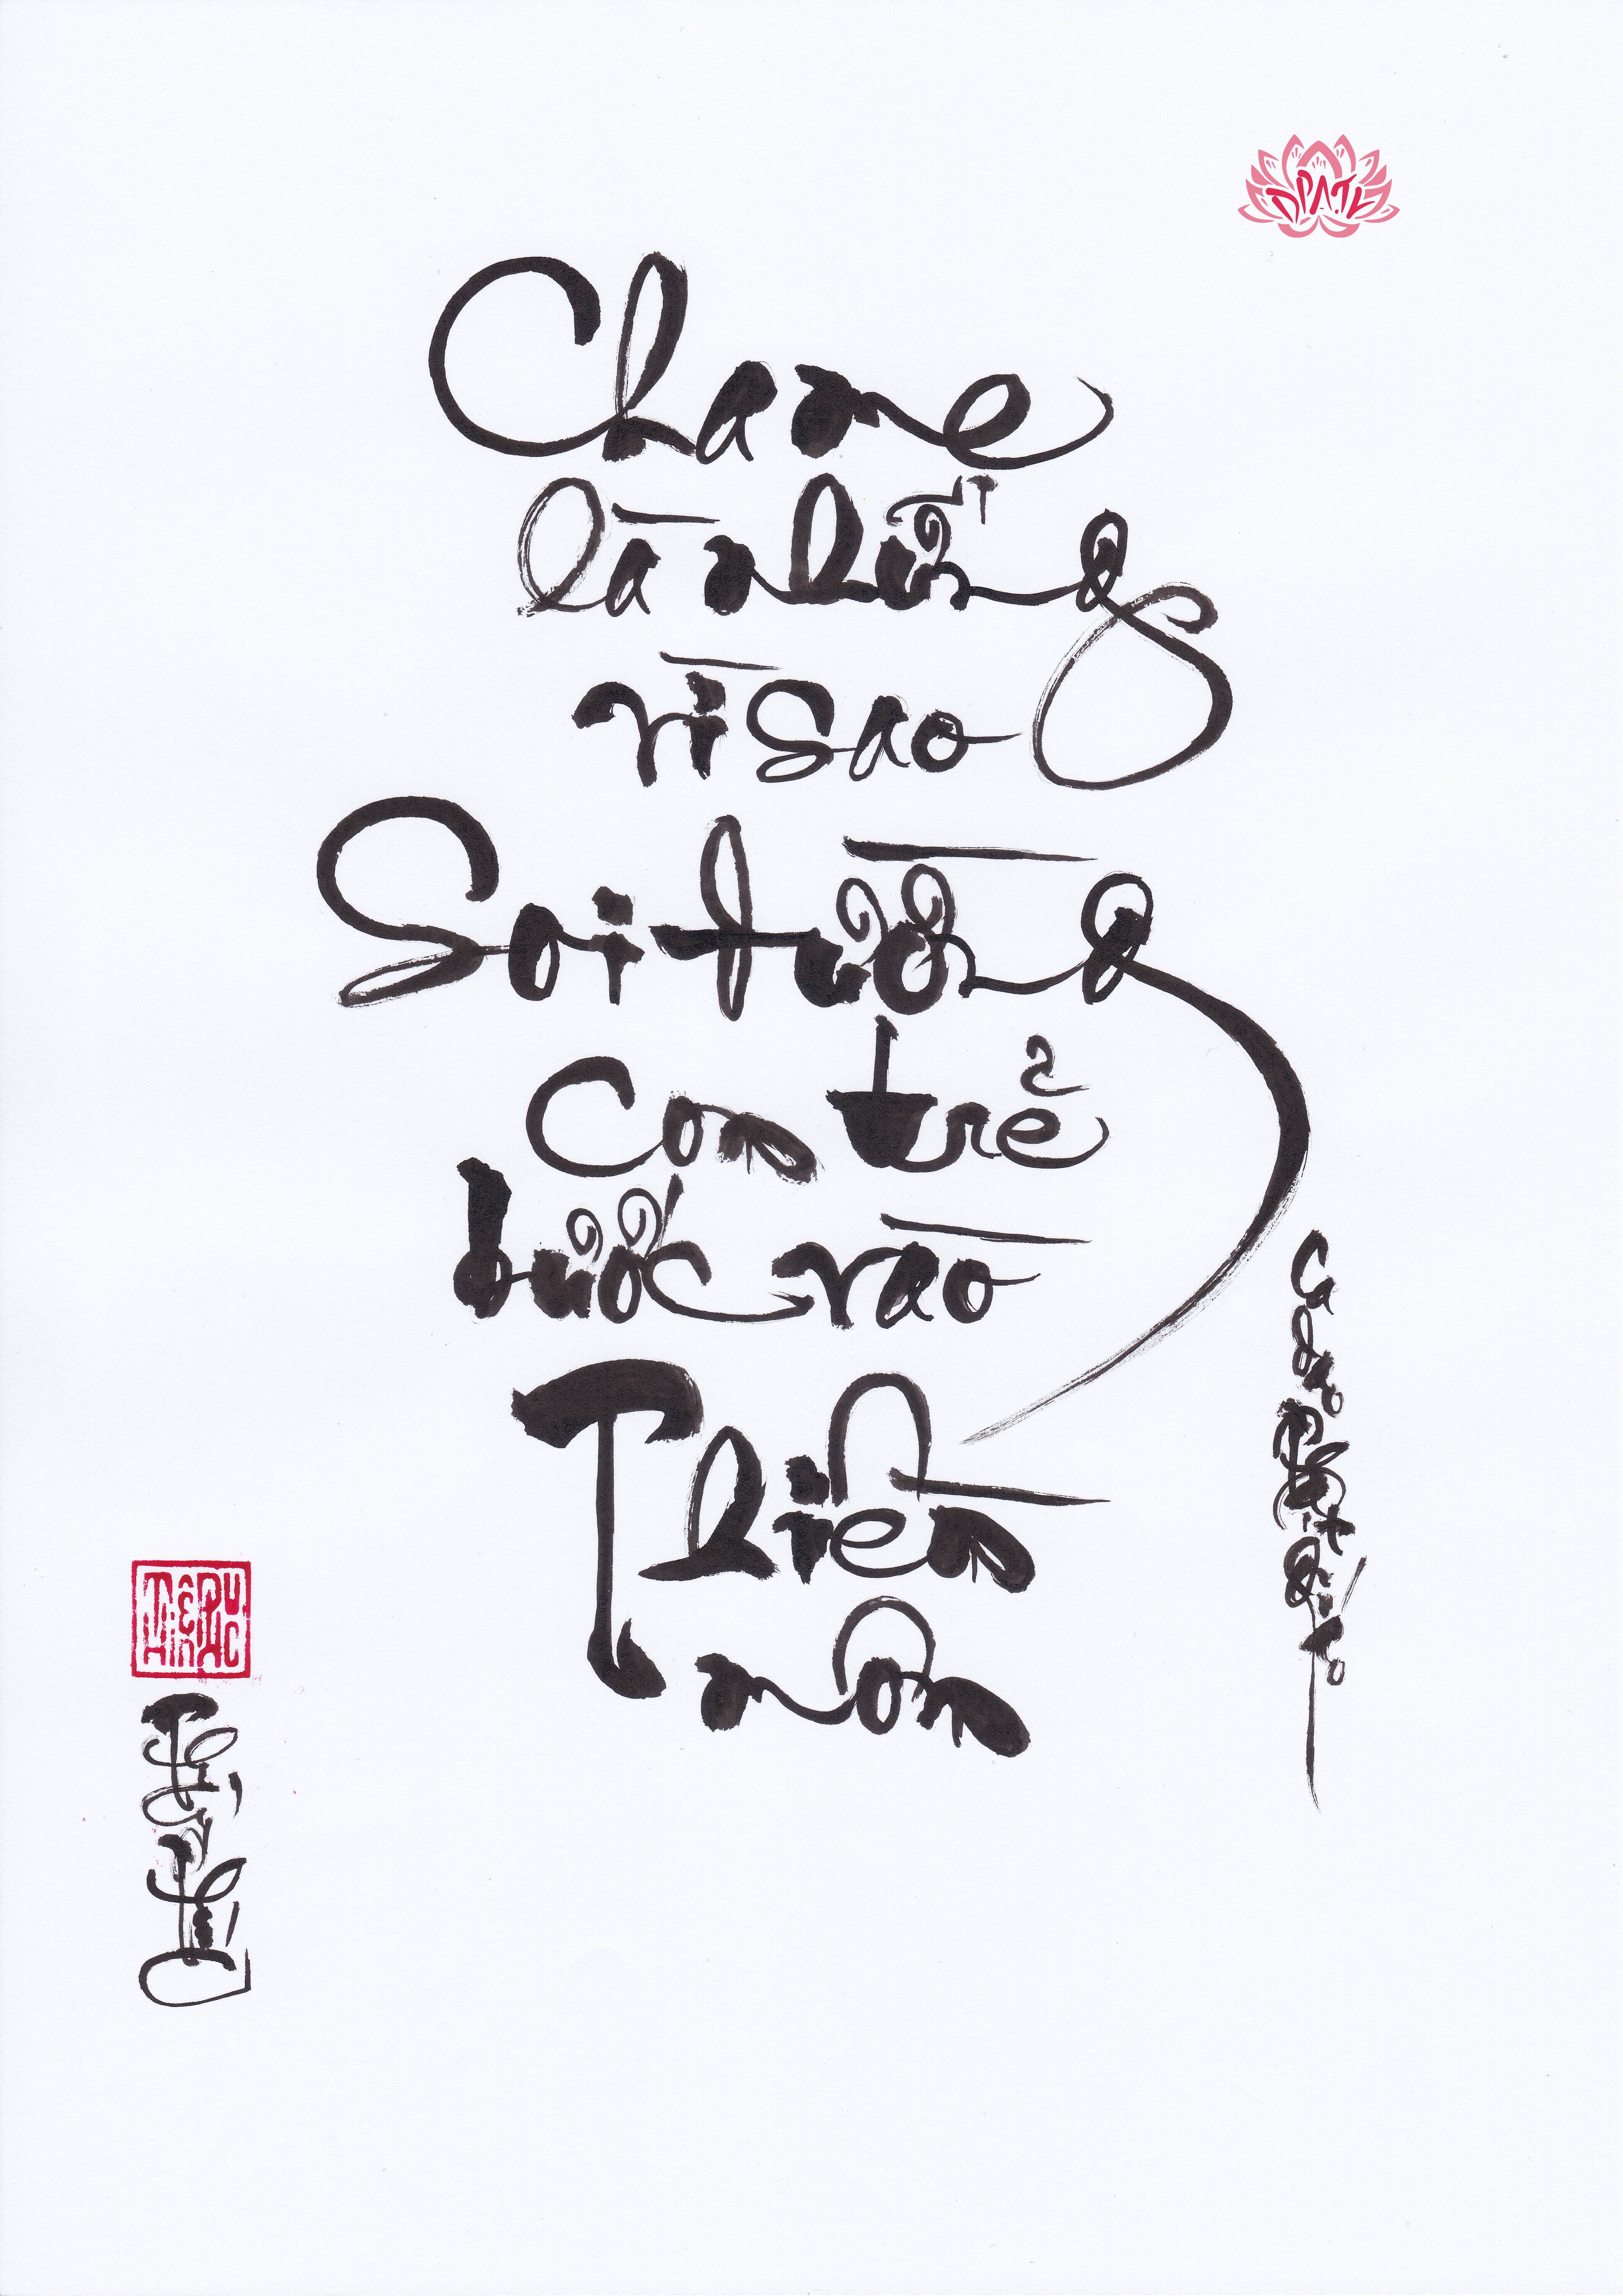 Cha me
là những
vì sao
Soi đường
con trẻ
bước vào
Thiền
môn
Ca dao Phật Giáo
THIÊN PHUC